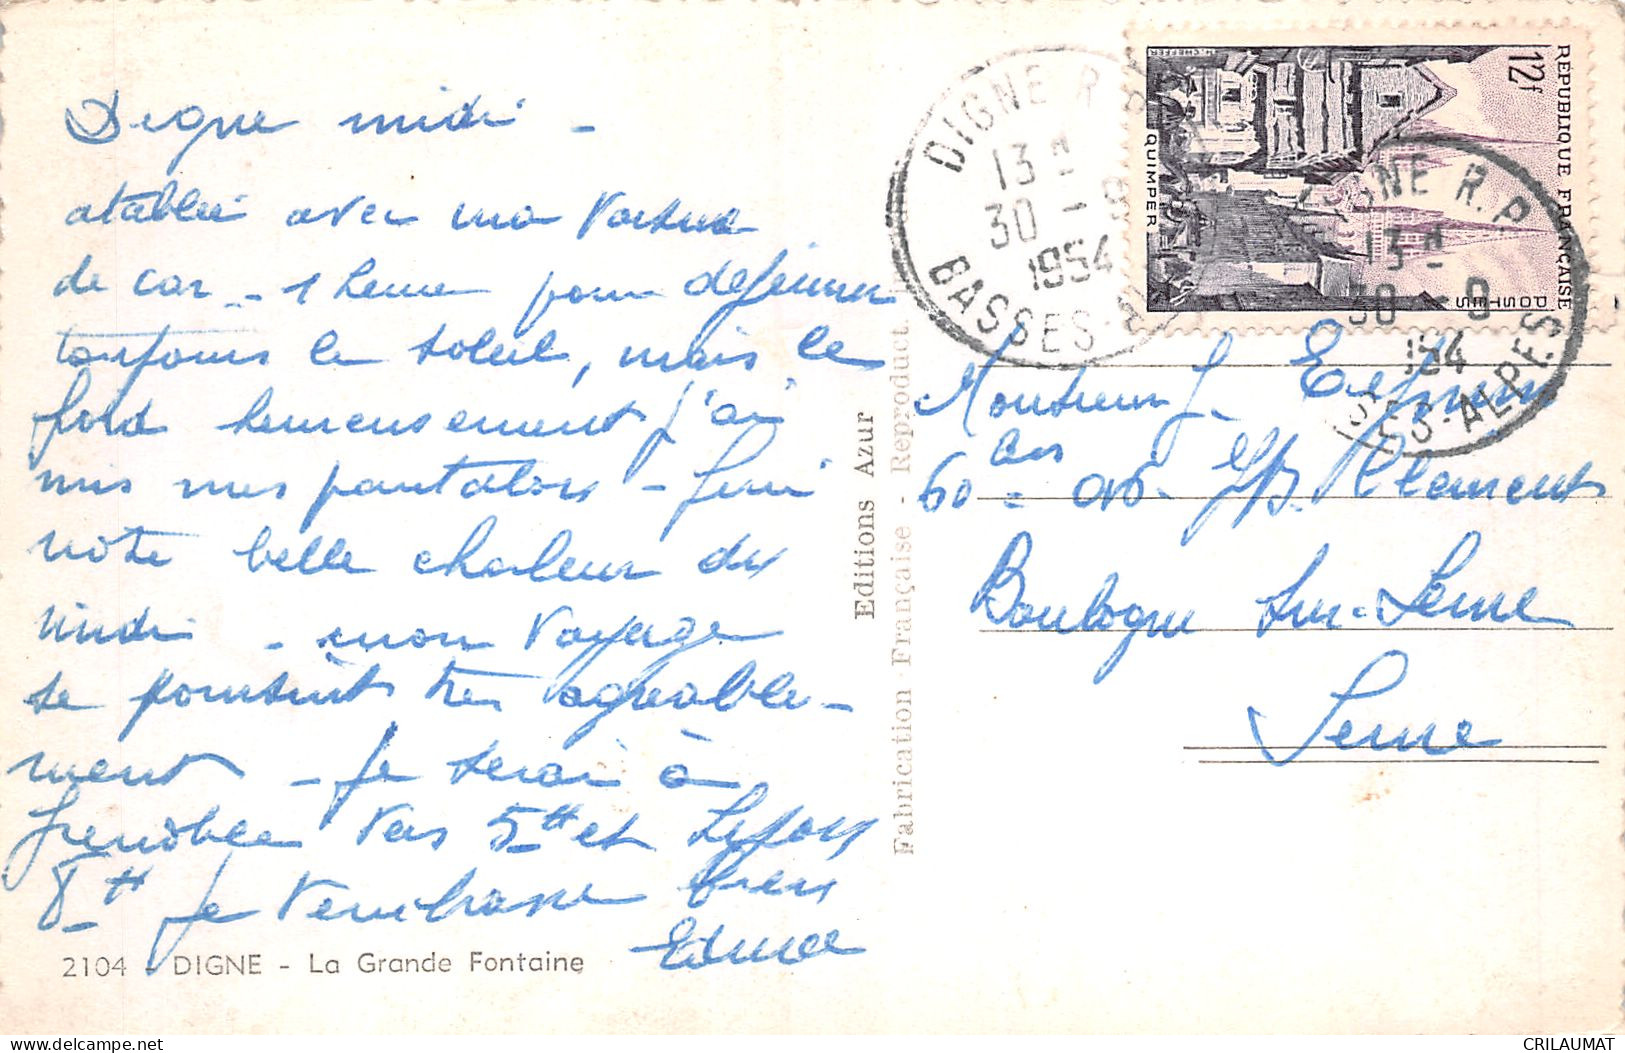 Digne midi -
atablée avec ma voisine
de car - 1 heure pour déjeuner
toujours le soleil, mais le
froid heureusement j'ai
mis mes pantalons - fini
notre belle chaleur du
midi - mon voyage
se poursuit très agréable-
ment - Je serai à
Grenoble vers 5 H et
8 H Je t'embrasse bien
Edmée
2104 - DIGNE - La Grande Fontaine
Editions Azur
Fabrication Française - Reproduct.
DIGNE R.P.
13 H
30 - 9
1954
BASSES-ALPES
REPUBLIQUE FRANÇAISE
12f
POSTES
QUIMPER
DIGNE R.P.
13 H
30 - 9
1954
BASSES-ALPES
Monsieur J.
60
Boulogne sur-Seine
Seine
CRILAUMAT